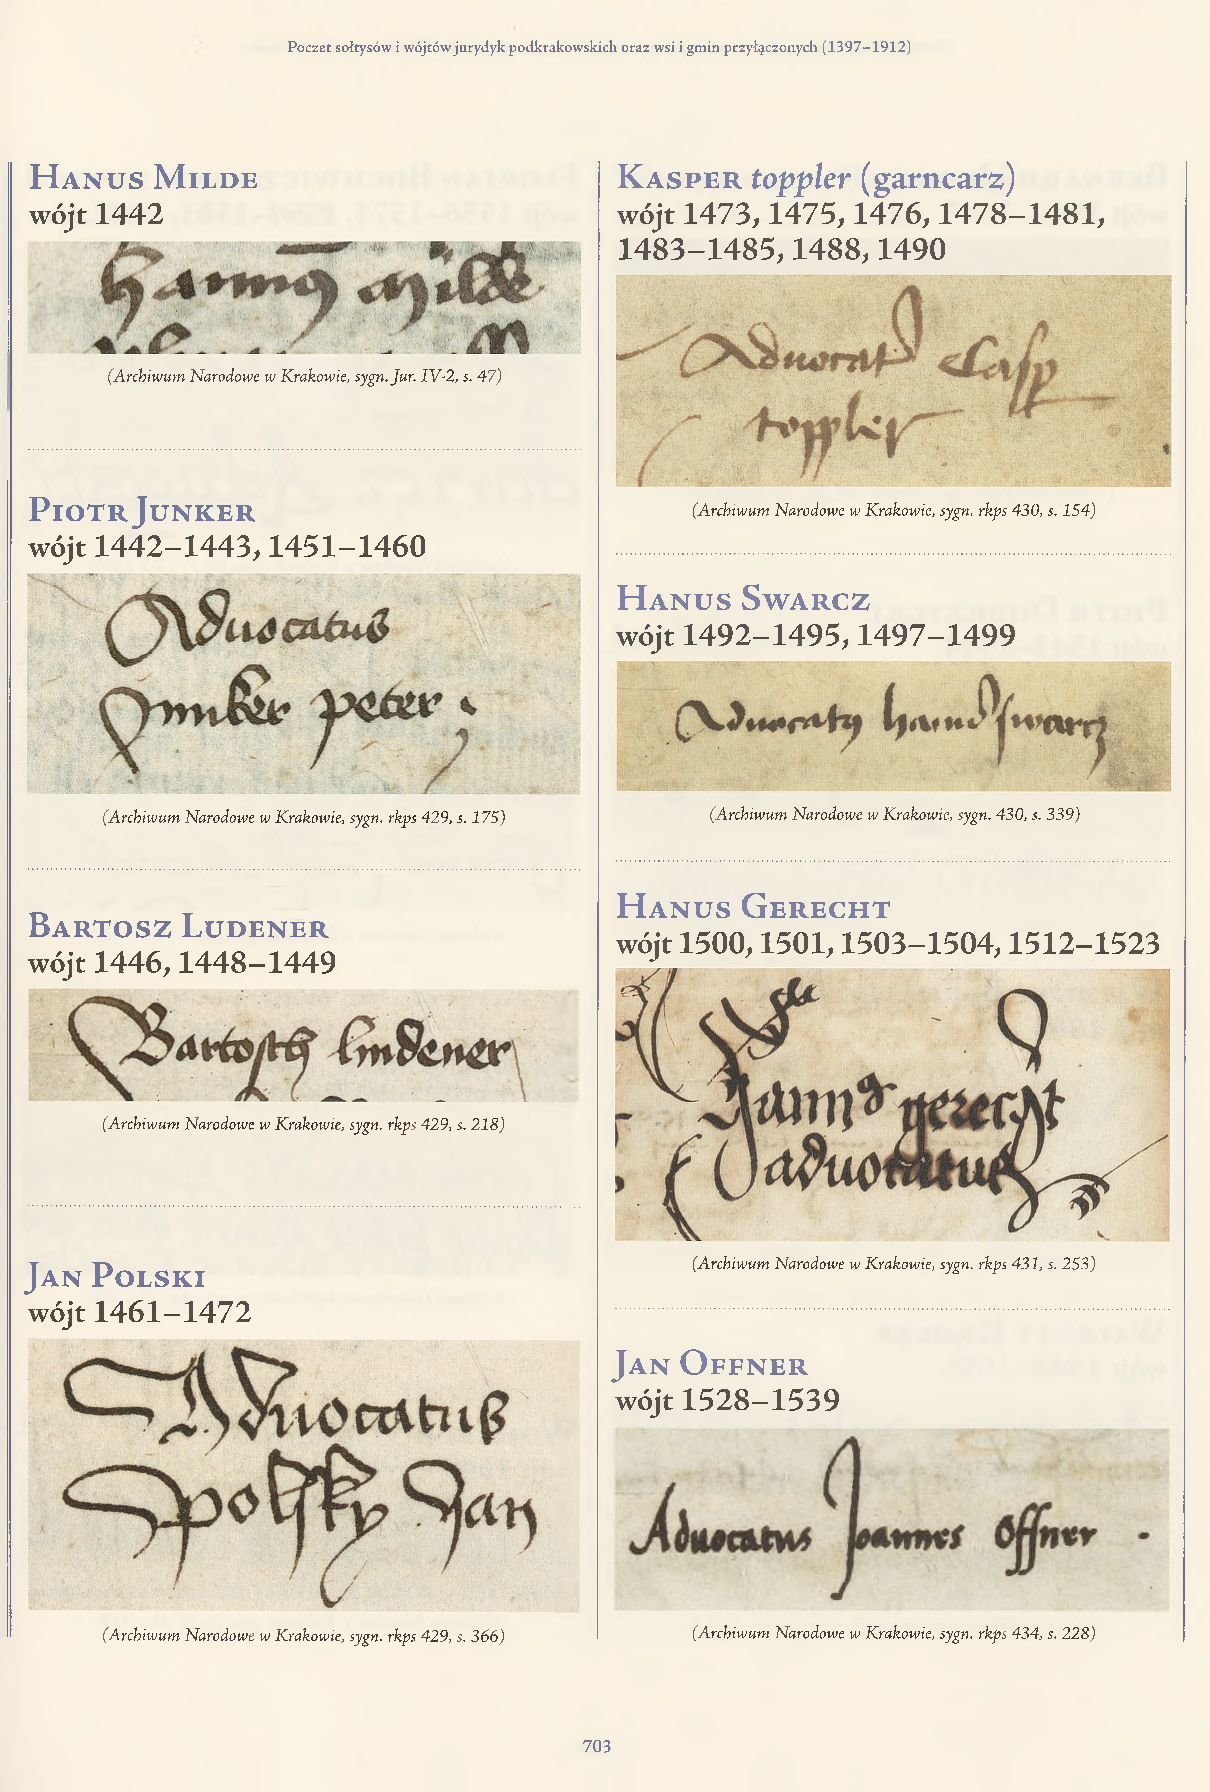 Poczet sołtysów i wójtów jurydyk podkrakowskich oraz wsi i gmin przyłączonych (1397–1912)
Hanus Milde
wójt 1442
hannus milde
(Archiwum Narodowe w Krakowie, sygn. Jur. IV-2, s. 47)
Piotr Junker
wójt 1442–1443, 1451–1460
Aduocatus
Junker peter
(Archiwum Narodowe w Krakowie, sygn. rkps 429, s. 175)
Bartosz Ludener
wójt 1446, 1448–1449
Bartosch lindener
(Archiwum Narodowe w Krakowie, sygn. rkps 429, s. 218)
Jan Polski
wójt 1461–1472
Aduocatus
polsky Jan
(Archiwum Narodowe w Krakowie, sygn. rkps 429, s. 366)
Kasper toppler (garncarz)
wójt 1473, 1475, 1476, 1478–1481,
1483–1485, 1488, 1490
Aduocat Casp
toppler
(Archiwum Narodowe w Krakowie, sygn. rkps 430, s. 154)
Hanus Swarcz
wójt 1492–1495, 1497–1499
Aduocatus hanus swarcz
(Archiwum Narodowe w Krakowie, sygn. 430, s. 339)
Hanus Gerecht
wójt 1500, 1501, 1503–1504, 1512–1523
Hannus gerecht
aduocatus
(Archiwum Narodowe w Krakowie, sygn. rkps 431, s. 253)
Jan Offner
wójt 1528–1539
Aduocatus Joannes Offner
(Archiwum Narodowe w Krakowie, sygn. rkps 434, s. 228)
703